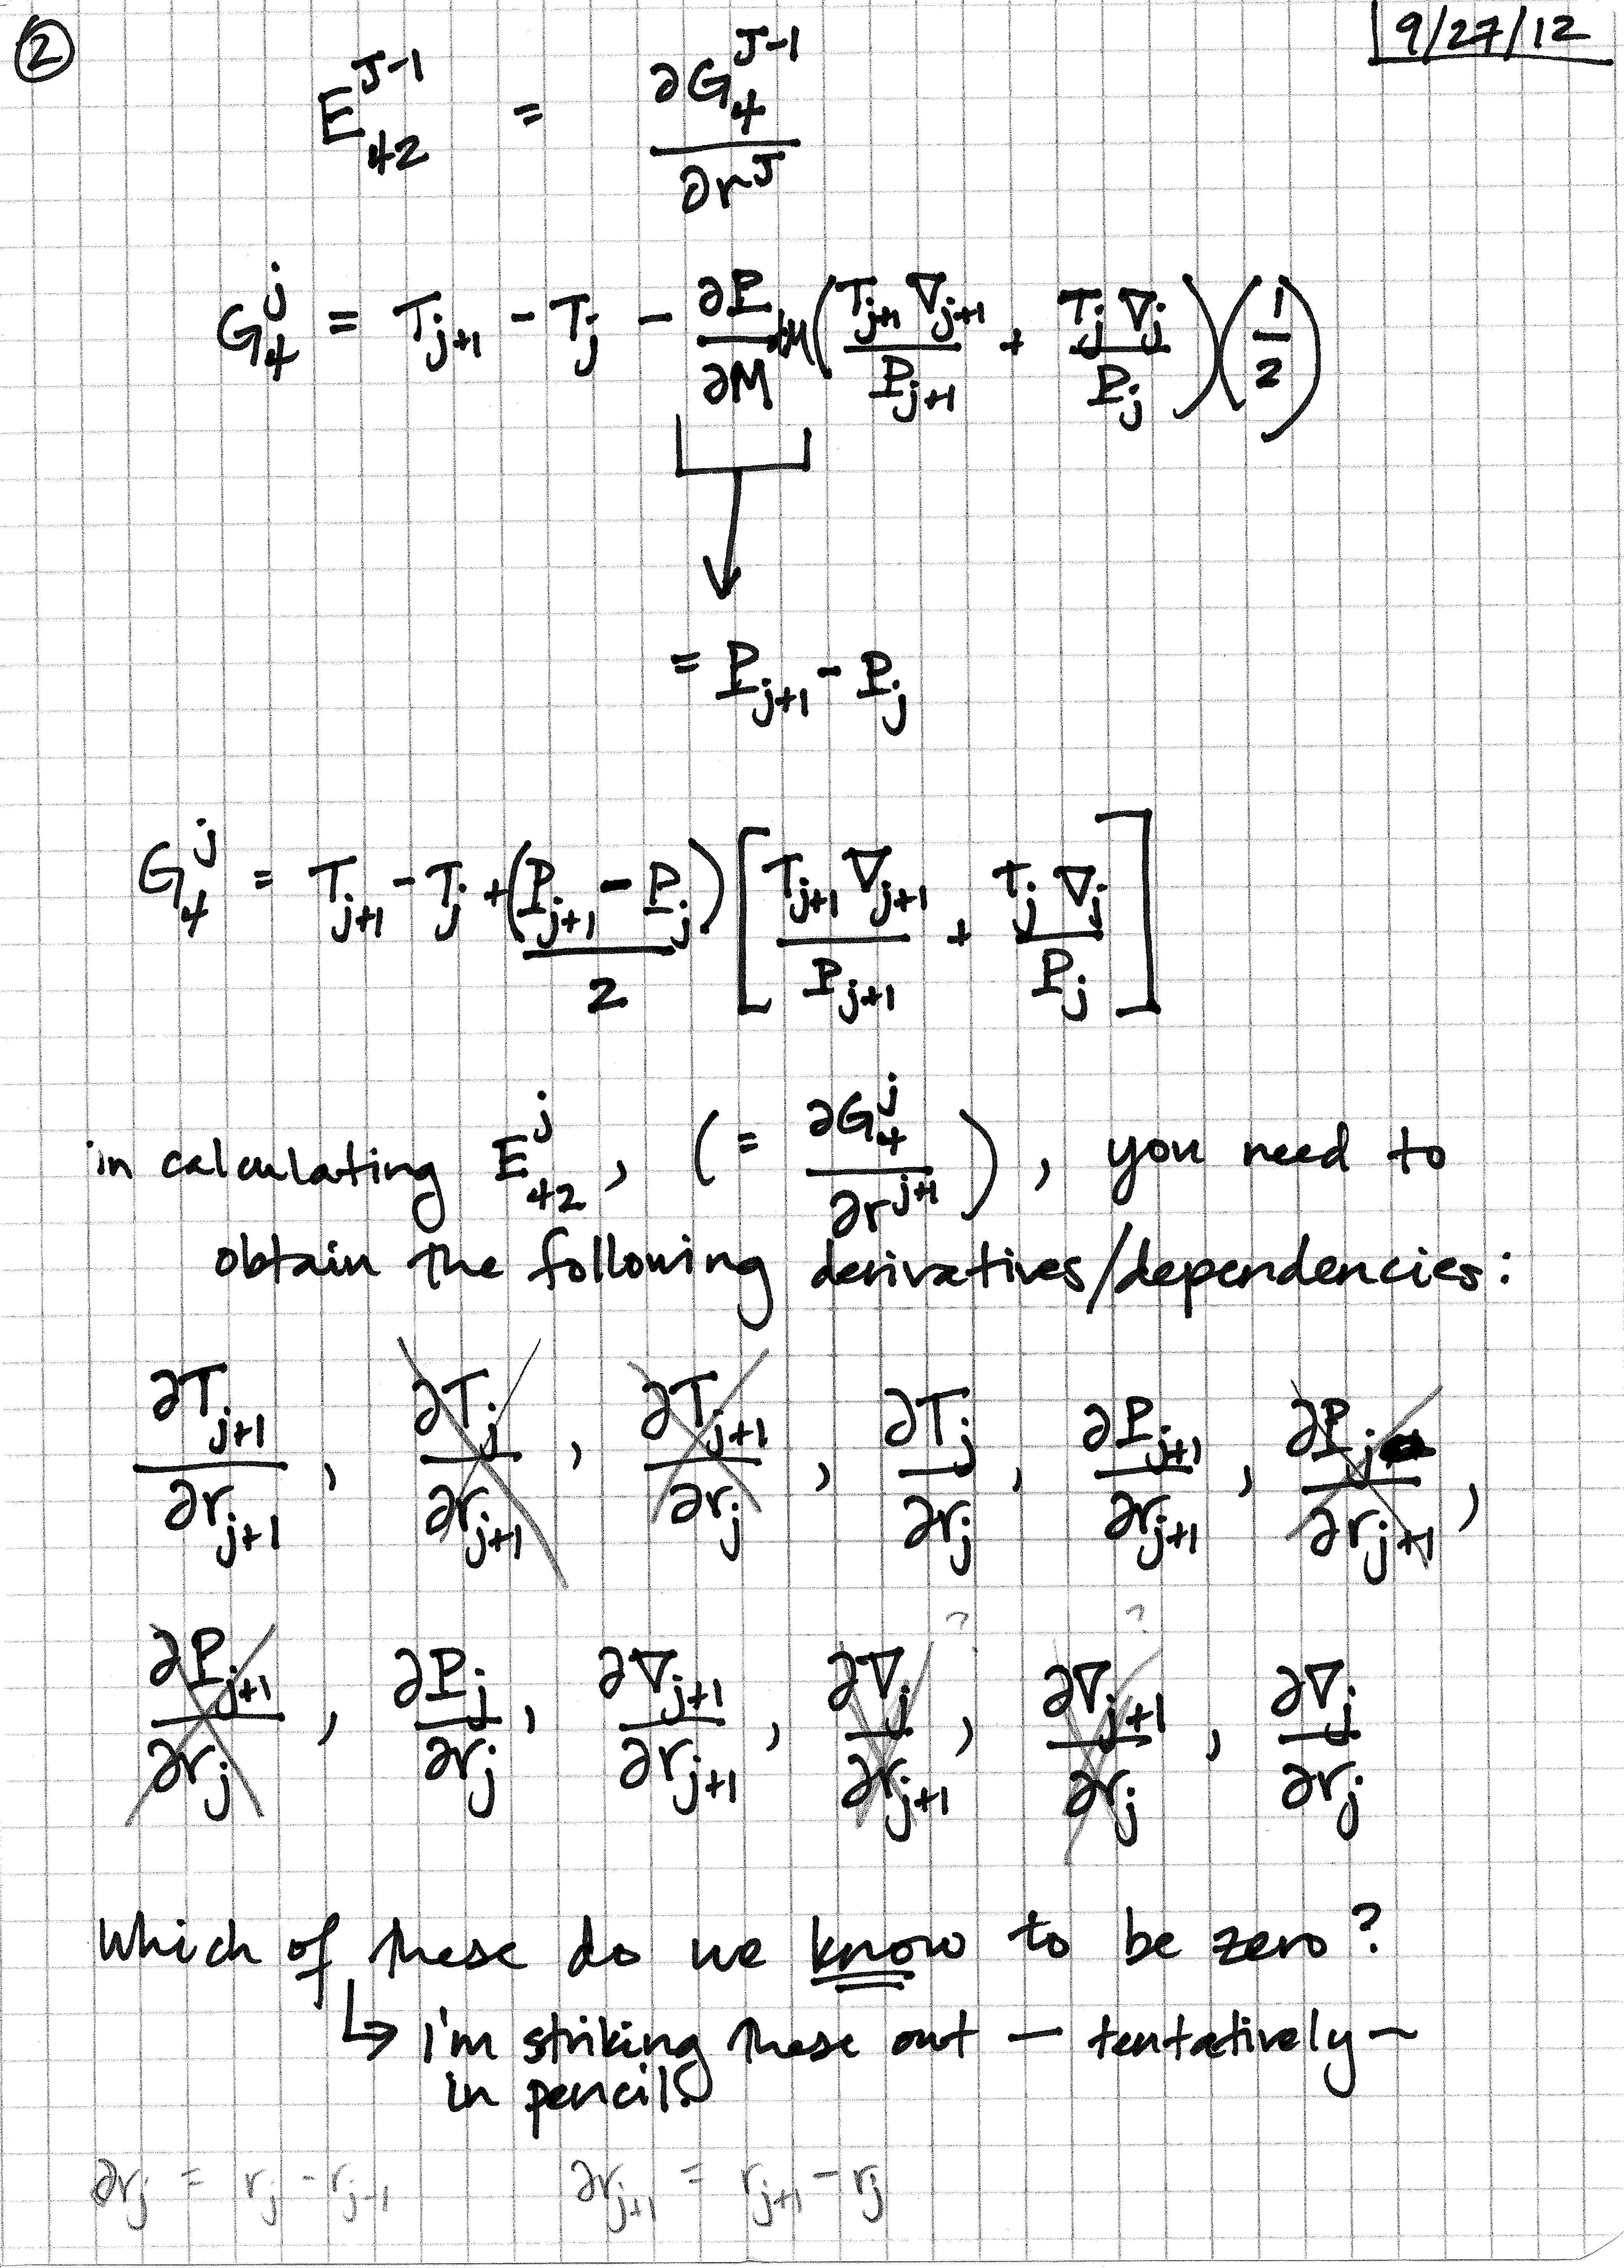 ② 9/27/12
E_{42}^{J-1} = ∂G_4^{J-1} / ∂r^J
G_4^j = T_{j+1} - T_j - ∂P/∂M dM (T_{j+1} ∇_{j+1} / P_{j+1} + T_j ∇_j / P_j)(1/2)
= P_{j+1} - P_j
G_4^j = T_{j+1} - T_j + (P_{j+1} - P_j)/2 [T_{j+1} ∇_{j+1} / P_{j+1} + T_j ∇_j / P_j]
in calculating E_{42}^j, (= ∂G_4^j / ∂r^{j+1}), you need to
obtain the following derivatives/dependencies:
∂T_{j+1}/∂r_{j+1}, ∂T_j/∂r_{j+1}, ∂T_{j+1}/∂r_j, ∂T_j/∂r_j, ∂P_{j+1}/∂r_{j+1}, ∂P_j/∂r_{j+1},
? ?
∂P_{j+1}/∂r_j, ∂P_j/∂r_j, ∂∇_{j+1}/∂r_{j+1}, ∂∇_j/∂r_{j+1}, ∂∇_{j+1}/∂r_j, ∂∇_j/∂r_j
Which of these do we know to be zero?
↳ I'm striking these out — tentatively —
in pencil.
∂r_j = r_j - r_{j-1} ∂r_{j+1} = r_{j+1} - r_j